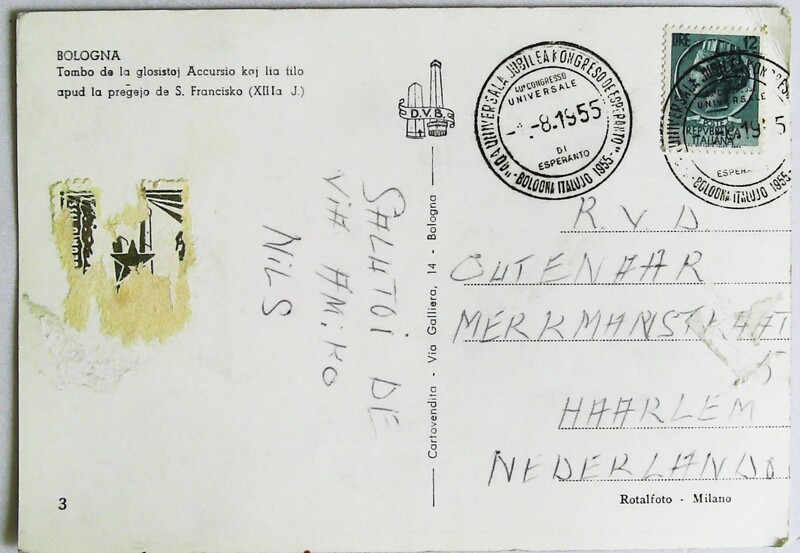 BOLOGNA
Tombo de la glosistoj Accursio kaj lia filo
apud la preĝejo de S. Francisko (XIIIa J.)
D.V.B.
"40a UNIVERSALA JUBILEA KONGRESO DE ESPERANTO"
40º CONGRESSO
UNIVERSALE
-8.1955
DI
ESPERANTO
-BOLOGNA ITALUJO 1955-
LIRE 12
POSTE
REPVBBLICA
ITALIANA
UNIVERSALA JUBILEA
UNIVERSALE
ESPERA
-BOLOGNA ITALUJO 1955-
SALUTOJ DE
VIA AMIKO
NILS
Cartovendita - Via Galliera, 14 - Bologna
R. V. D.
OUTENAAR
MERKMANSTRAAT
5
HAARLEM
NEDERLANDO
3
Rotalfoto - Milano